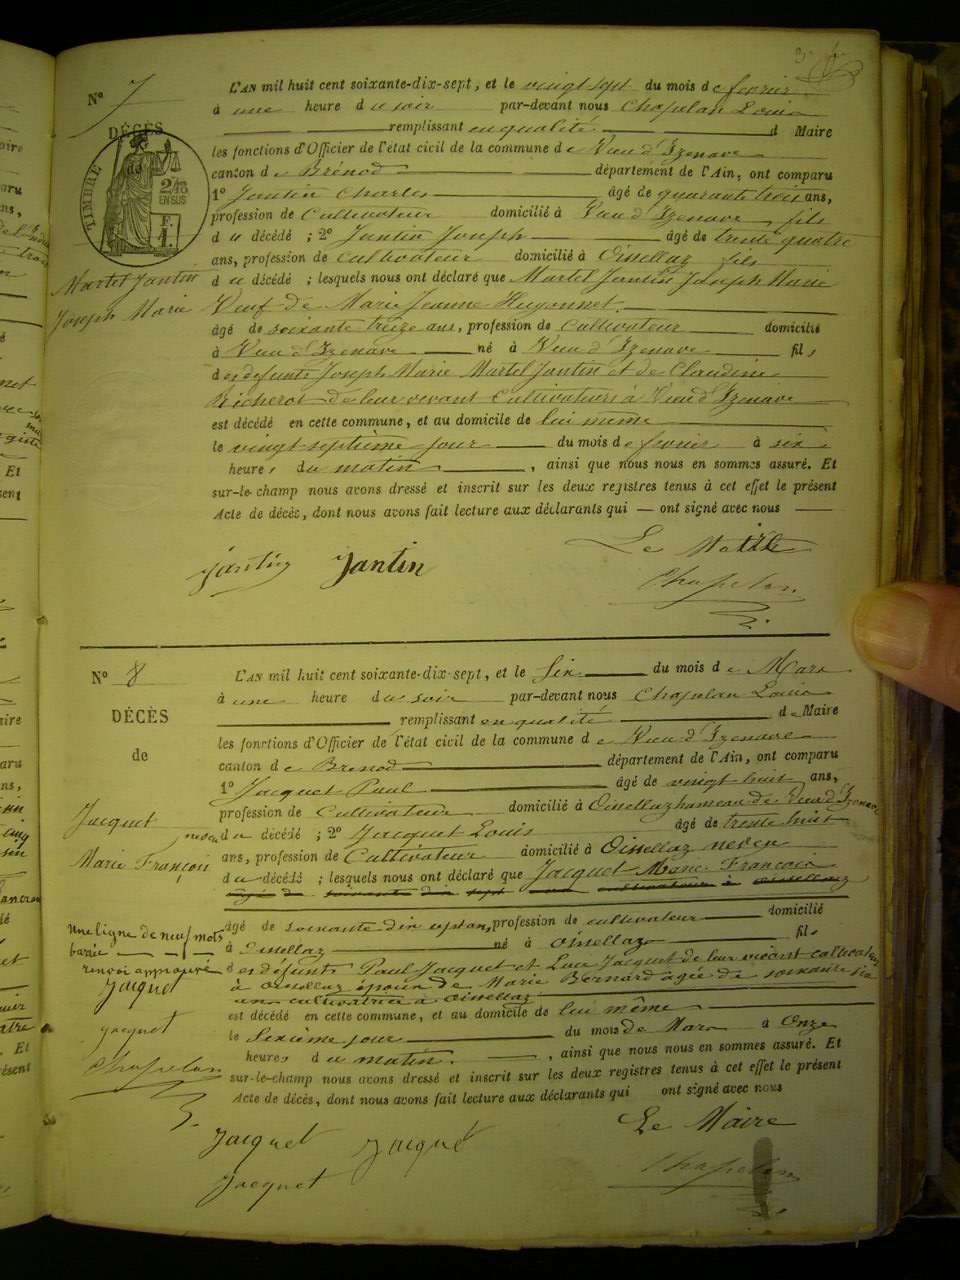 N° 7
DÉCÈS
de
TIMBRE
2/10
EN SUS
F.
1.
Martel Jantin
Joseph Marie
L'AN mil huit cent soixante-dix-sept, et le vingt sept du mois de fevrier
à une heure du soir par-devant nous Chapelan Louis
remplissant en qualité d Maire
les fonctions d'Officier de l'état civil de la commune de Vieu d'Izenave
canton de Brénod département de l'Ain, ont comparu
1° Jantin Charles âgé de quarante trois ans,
profession de Cultivateur domicilié à Vieu d'Izenave fils
du décédé ; 2° Jantin Joseph âgé de trente quatre
ans, profession de cultivateur domicilié à Oisellaz fils
du décédé ; lesquels nous ont déclaré que Martel Jantin Joseph Marie
Veuf de Marie Jeanne Hugonnet
âgé de soixante treize ans, profession de Cultivateur domicilié
à Vieu d'Izenave né à Vieu d'Izenave fils
des defunts Joseph Marie Martel Jantin et de Claudine
Richerot de leur vivant Cultivateurs à Vieu d'Izenave
est décédé en cette commune, et au domicile de lui même
le vingt septième jour du mois de fevrier à six
heures du matin , ainsi que nous nous en sommes assuré. Et
sur-le-champ nous avons dressé et inscrit sur les deux registres tenus à cet effet le présent
Acte de décès, dont nous avons fait lecture aux déclarants qui — ont signé avec nous
Le Maire
Jantin Jantin
Chapelan
N° 8
DÉCÈS
de
Jacquet
Marie François
L'AN mil huit cent soixante-dix-sept, et le Six du mois de Mars
à une heure du soir par-devant nous Chapelan Louis
remplissant en qualité de Maire
les fonctions d'Officier de l'état civil de la commune de Vieu d'Izenave
canton de Brenod département de l'Ain, ont comparu
1° Jacquet Paul âgé de vingt huit ans,
profession de Cultivateur domicilié à Oisellaz hameau de Vieu d'Izenave
neveu du décédé ; 2° Jacquet Louis âgé de trente huit
ans, profession de Cultivateur domicilié à Oisellaz neveu
du décédé ; lesquels nous ont déclaré que Jacquet Marie François
âgé de soixante dix sept ans cultivateur à Oisellaz
âgé de soixante dix sept ans, profession de cultivateur domicilié
à Oisellaz né à Oisellaz fils
des défunts Paul Jacquet et Jacquet de leur vivant cultivateurs
à Oisellaz époux de Marie Bernard agée de soixante six
ans cultivatrice à Oisellaz
est décédé en cette commune, et au domicile de lui même
le Sixième jour du mois de Mars à Onze
heures du matin , ainsi que nous nous en sommes assuré. Et
sur-le-champ nous avons dressé et inscrit sur les deux registres tenus à cet effet le présent
Acte de décès, dont nous avons fait lecture aux déclarants qui ont signé avec nous
Une ligne de neuf mots
barrée
renvoi approuvé
Jacquet
Jacquet
Chapelan
Le Maire
Jacquet Jacquet
Chapelan
Jacquet